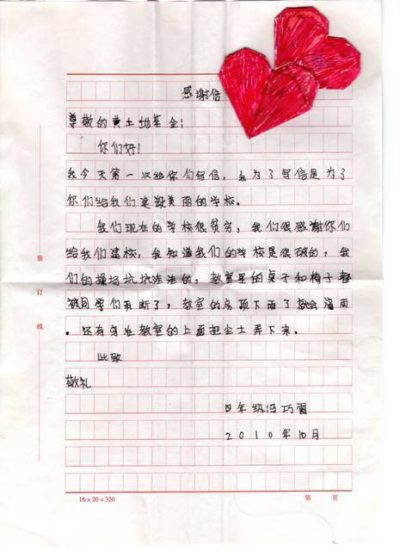 感谢信
尊敬的黄土地基金：
你们好！
我今天第一次给你们写信，我为了写信是为了
你们给我们建设美丽的学校。
我们现在的学校很贫穷，我们很感谢你们
给我们建校，我知道我们的学校是很破的，我
们的操场坑坑洼洼的，教室里的桌子和椅子都
被同学们弄断了，教室的房顶下雨了就会漏雨
。还有鸟在教室的上面把尘土弄下来。
此致
敬礼
四年级冯巧雷
2010年10月
装
订
线
16×20=320
第 页